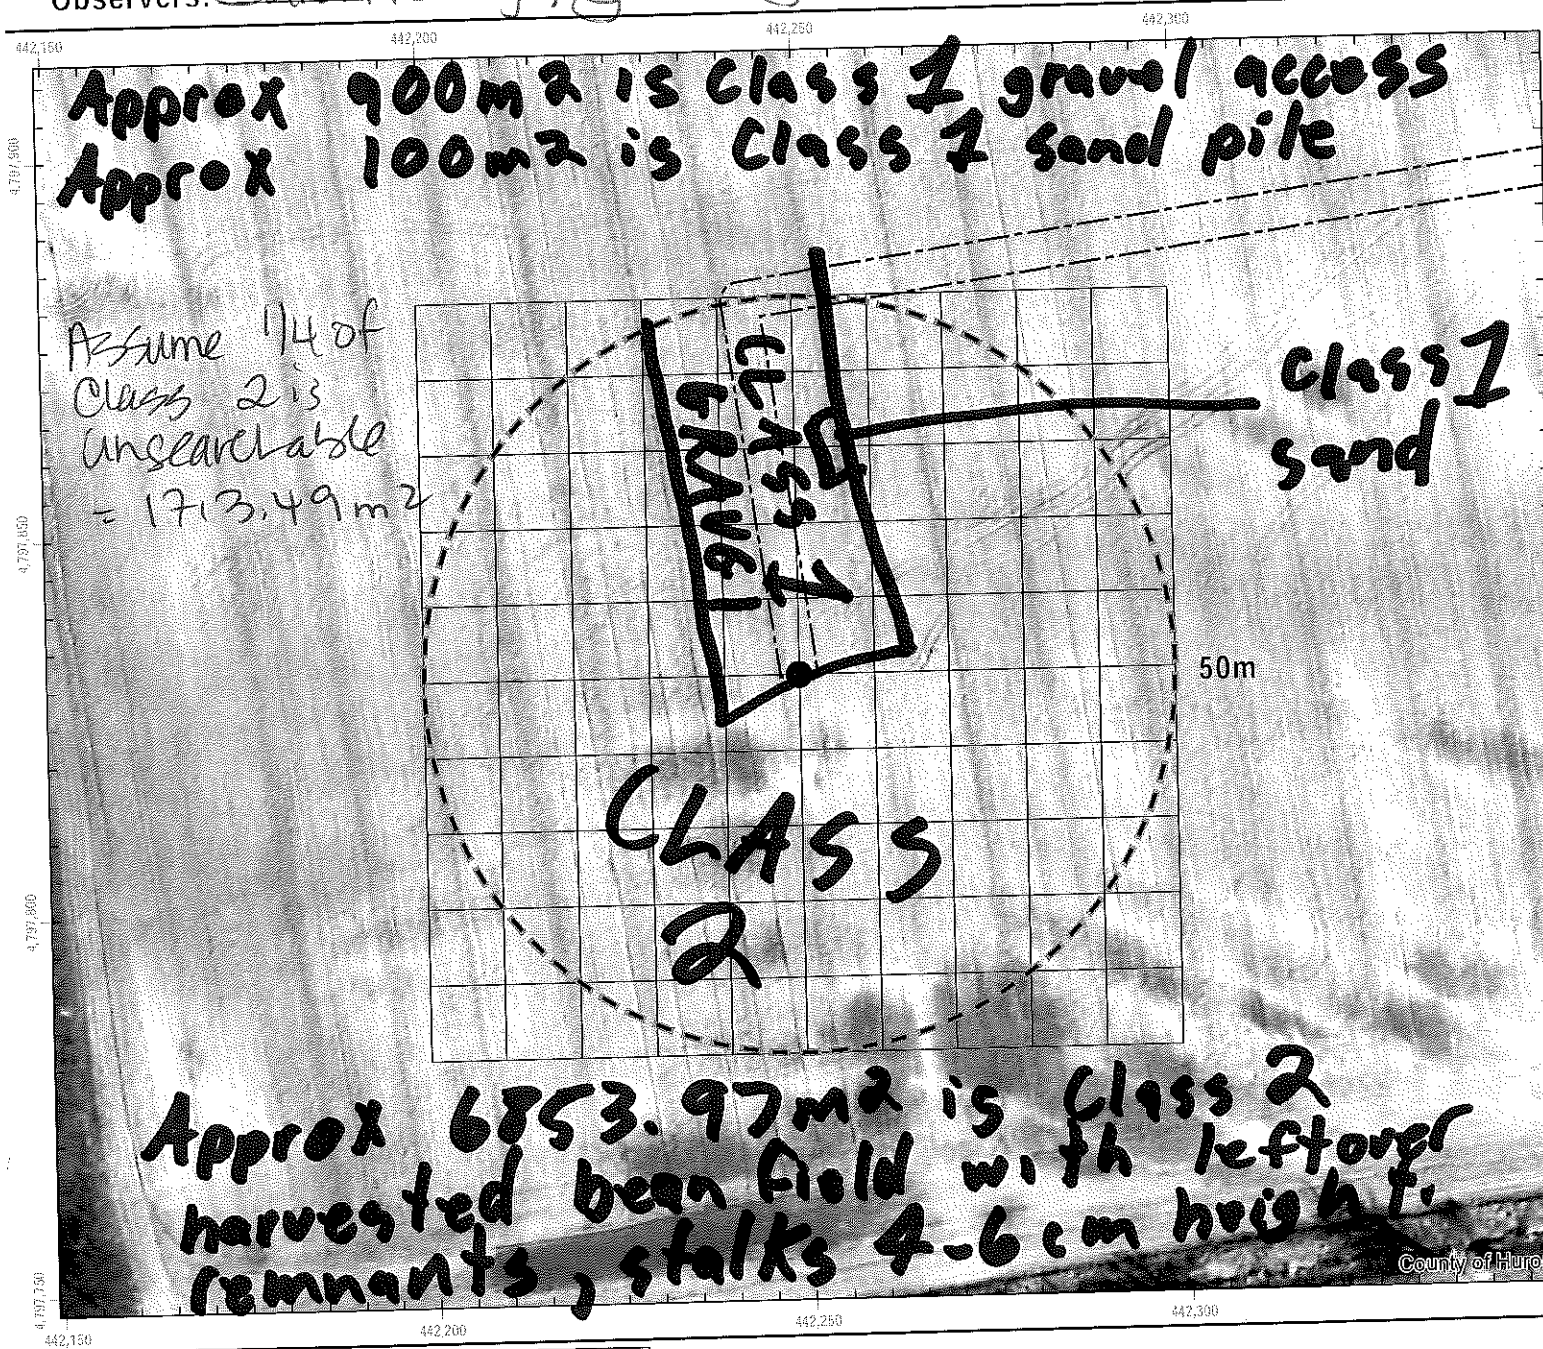 Observers:
442,150 442,200 442,250 442,300
Approx 900m2 is Class 1 gravel access
Approx 100m2 is Class 1 sand pile
4,797,900
Assume 1/4 of
Class 2 is
unsearchable
= 1713.49m2
CLASS 1
GRAVEL
Class 1
sand
4,797,850
50m
CLASS
2
4,797,800
Approx 6853.97m2 is Class 2
harvested bean field with leftover
remnants, stalks 4-6cm height.
County of Huro
4,797,750
442,150 442,200 442,250 442,300